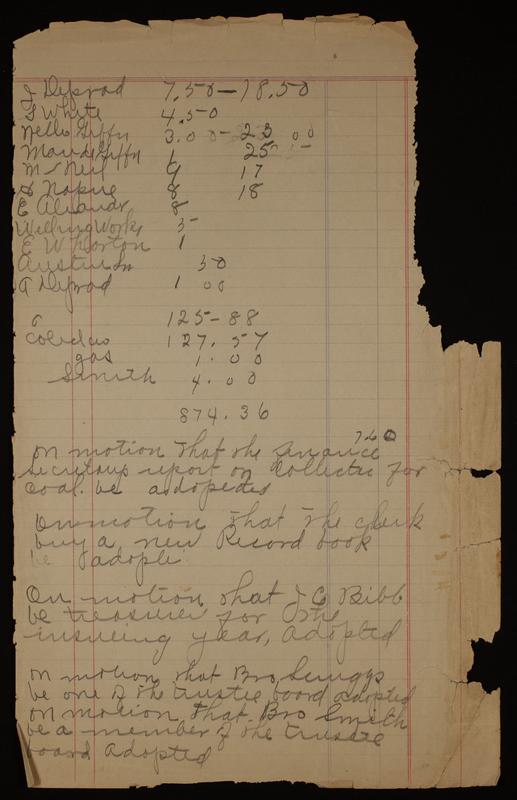 J Dyprod 7.50 — 18.50
S White 4.50
Nellie Giffn 3.00 - 23 00
Maude Giffn 1 25
M S Neil 9 17
S Napue 8 18
E Alixandr 8
Willing Works 5
E W Norton 1
Austin Sn 30
A Dyprod 1 00
125-88
127.57
gas 1.00
Smith 4.00
874.36
on motion that the finance 760
secretary report on Collected for
coal. be adopeted
On motion that the clerk
buy a new Record book
be adople
On motion that J C Bibb
be treasurer for the
insuing year, adopted
on motion that Bro. Scruggs
be one of the trustie board adopted
on motion that Bro Smith
be a member of the trustie
board adopted